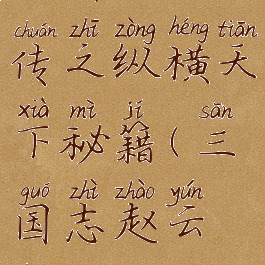 chuán zhī zòng héng tiān
传之纵横天
xià mì jí sān
下秘籍(三
guō zhì zhào yún
国志赵云